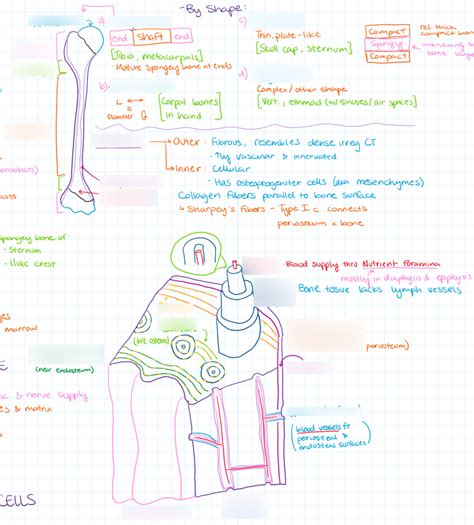 -By Shape:
a)
end shaft end
[Tibia, metacarpals]
Mature Spongey bone at ends
b).
L ↔ Diameter
[Carpal bones] in hand
c)
Thin, plate-like
[Skull cap, sternum]
Compact
Spongey
Compact
rel. thick
compact bone
d)
Complex/other shape
[Vert., ethmoid (w/ sinuses/air spaces)]
Outer: Fibrous, resembles dense irreg CT
vascular & innervated
Inner: Cellular
- Has osteoprogenitor cells (aka mesenchymes)
Collagen fibers parallel to bone surface
↳ Sharpey's Fibers - Type I c. connects
periosteum & bone
Spongey bone of:
- Sternum
- Iliac crest
Blood supply thru Nutrient Foramina
mostly in diaphysis & epiphysis
Bone tissue lacks lymph vessels
marrow
(w/c osteons)
periosteum)
(near endosteum)
& nerve supply
& matrix
(blood vessels fr
periosteal &
endosteal surfaces)
CELLS